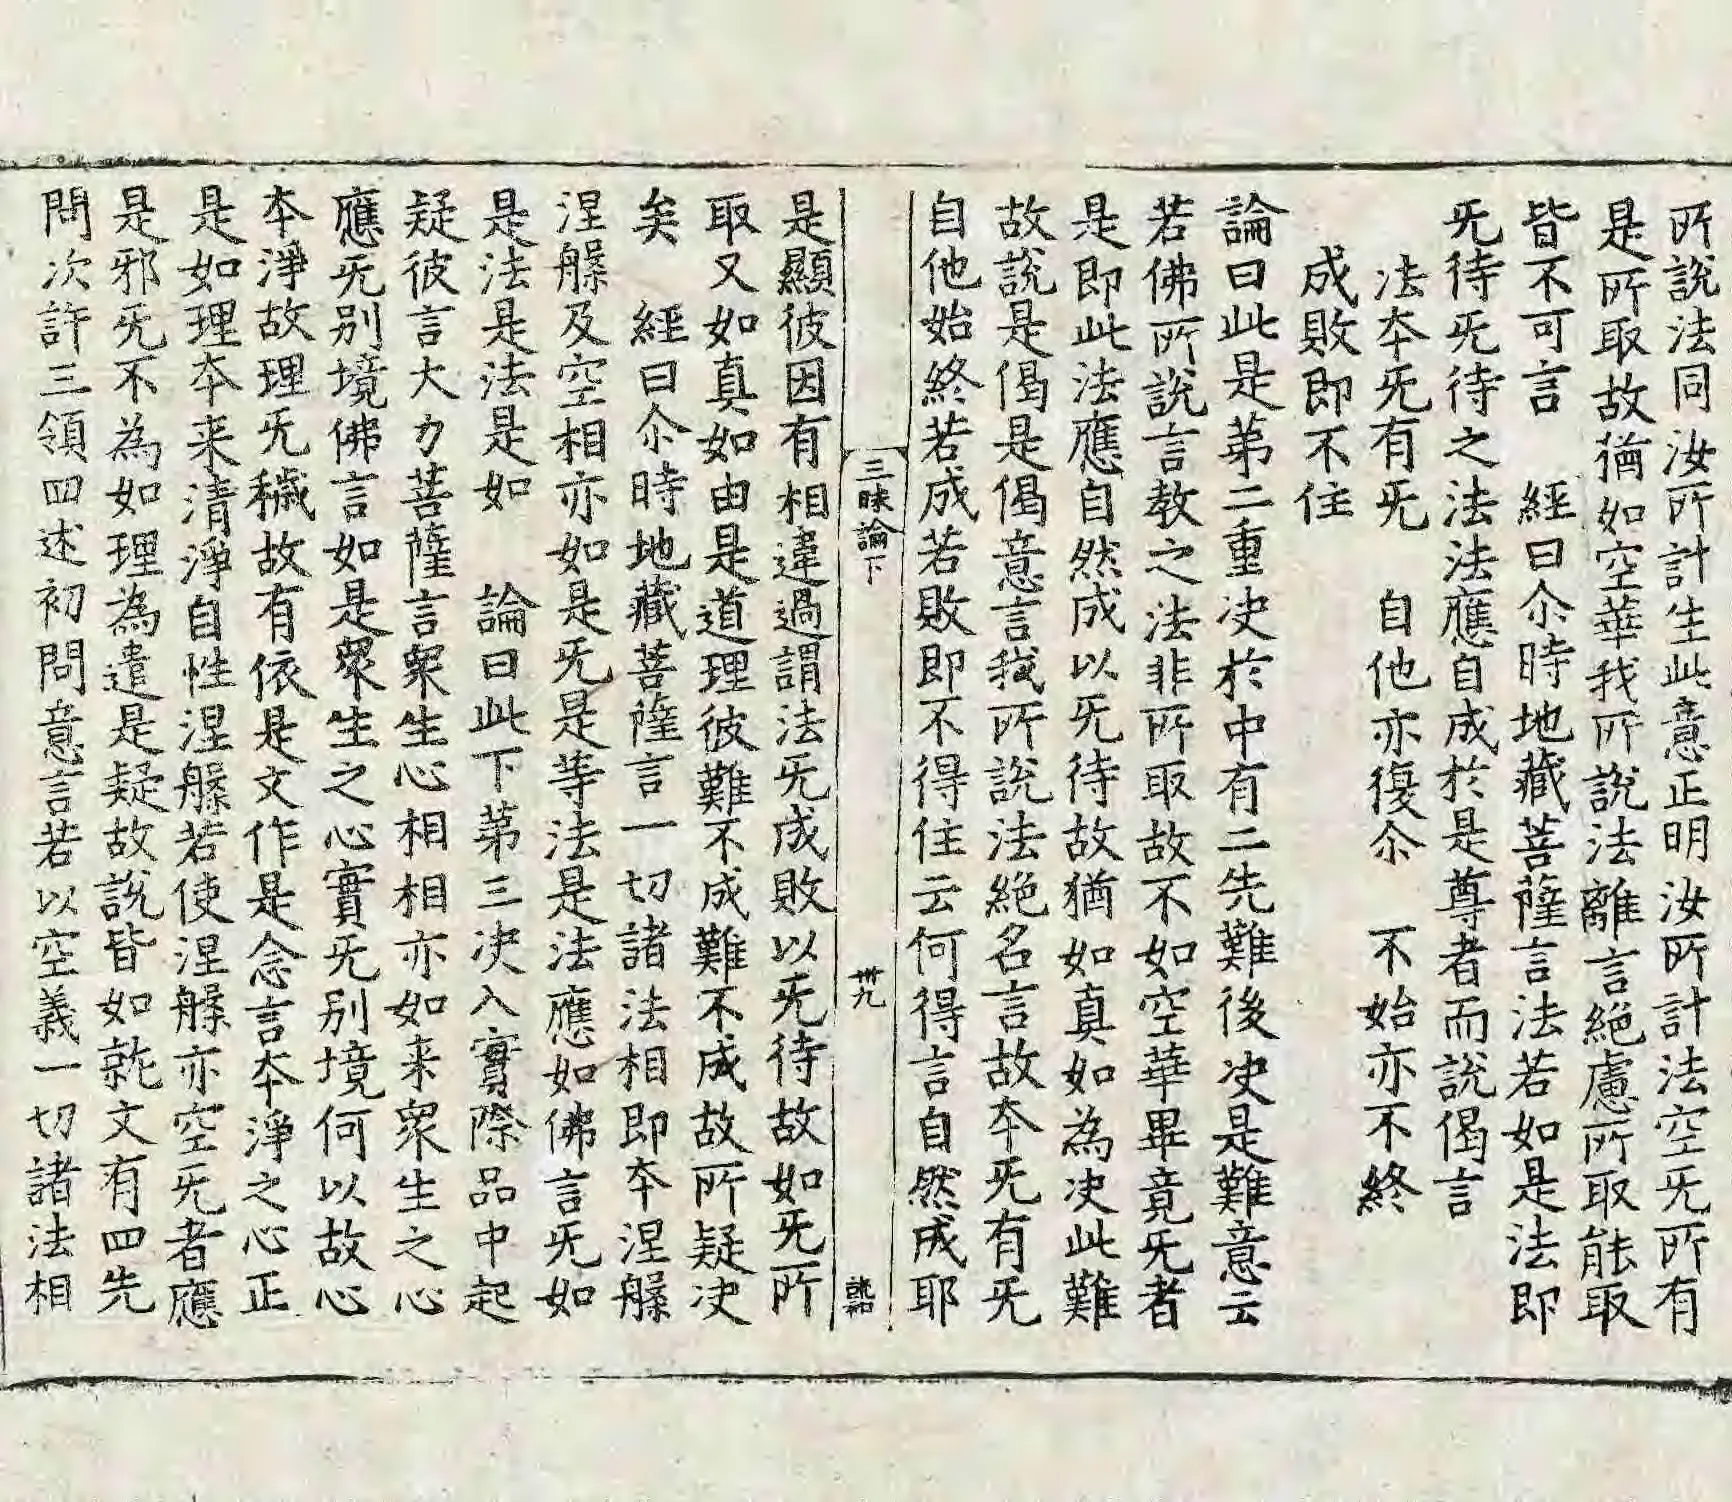 所說法同汝所計生此意正明汝所計法空旡所有
是所取故猶如空華我所說法離言絕慮所取能取
皆不可言　經曰尒時地藏菩薩言法若如是法即
旡待旡待之法法應自成於是尊者而說偈言
法夲旡有旡　自他亦復尒　不始亦不終
成敗即不住
論曰此是第二重决於中有二先難後决是難意云
若佛所說言教之法非所取故不如空華畢竟旡者
是即此法應自然成以旡待故猶如真如為决此難
故說是偈是偈意言我所說法絕名言故夲旡有旡
自他始終若成若敗即不得住云何得言自然成耶
三昧論下　卅九
是顯彼因有相違過謂法旡成敗以旡待故如旡所
取又如真如由是道理彼難不成難不成故所疑决
矣　經曰尒時地藏菩薩言一切諸法相即夲涅槃
涅槃及空相亦如是旡是等法是法應如佛言旡如
是法是法是如　論曰此下第三决入實際品中起
疑彼言大力菩薩言衆生心相相亦如来衆生之心
應旡别境佛言如是衆生之心實旡别境何以故心
夲淨故理旡穢故有依是文作是念言夲淨之心正
是如理夲来清淨自性涅槃若使涅槃亦空旡者應
是邪旡不為如理為遣是疑故說皆如就文有四先
問次許三領四述初問意言若以空義一切諸法相